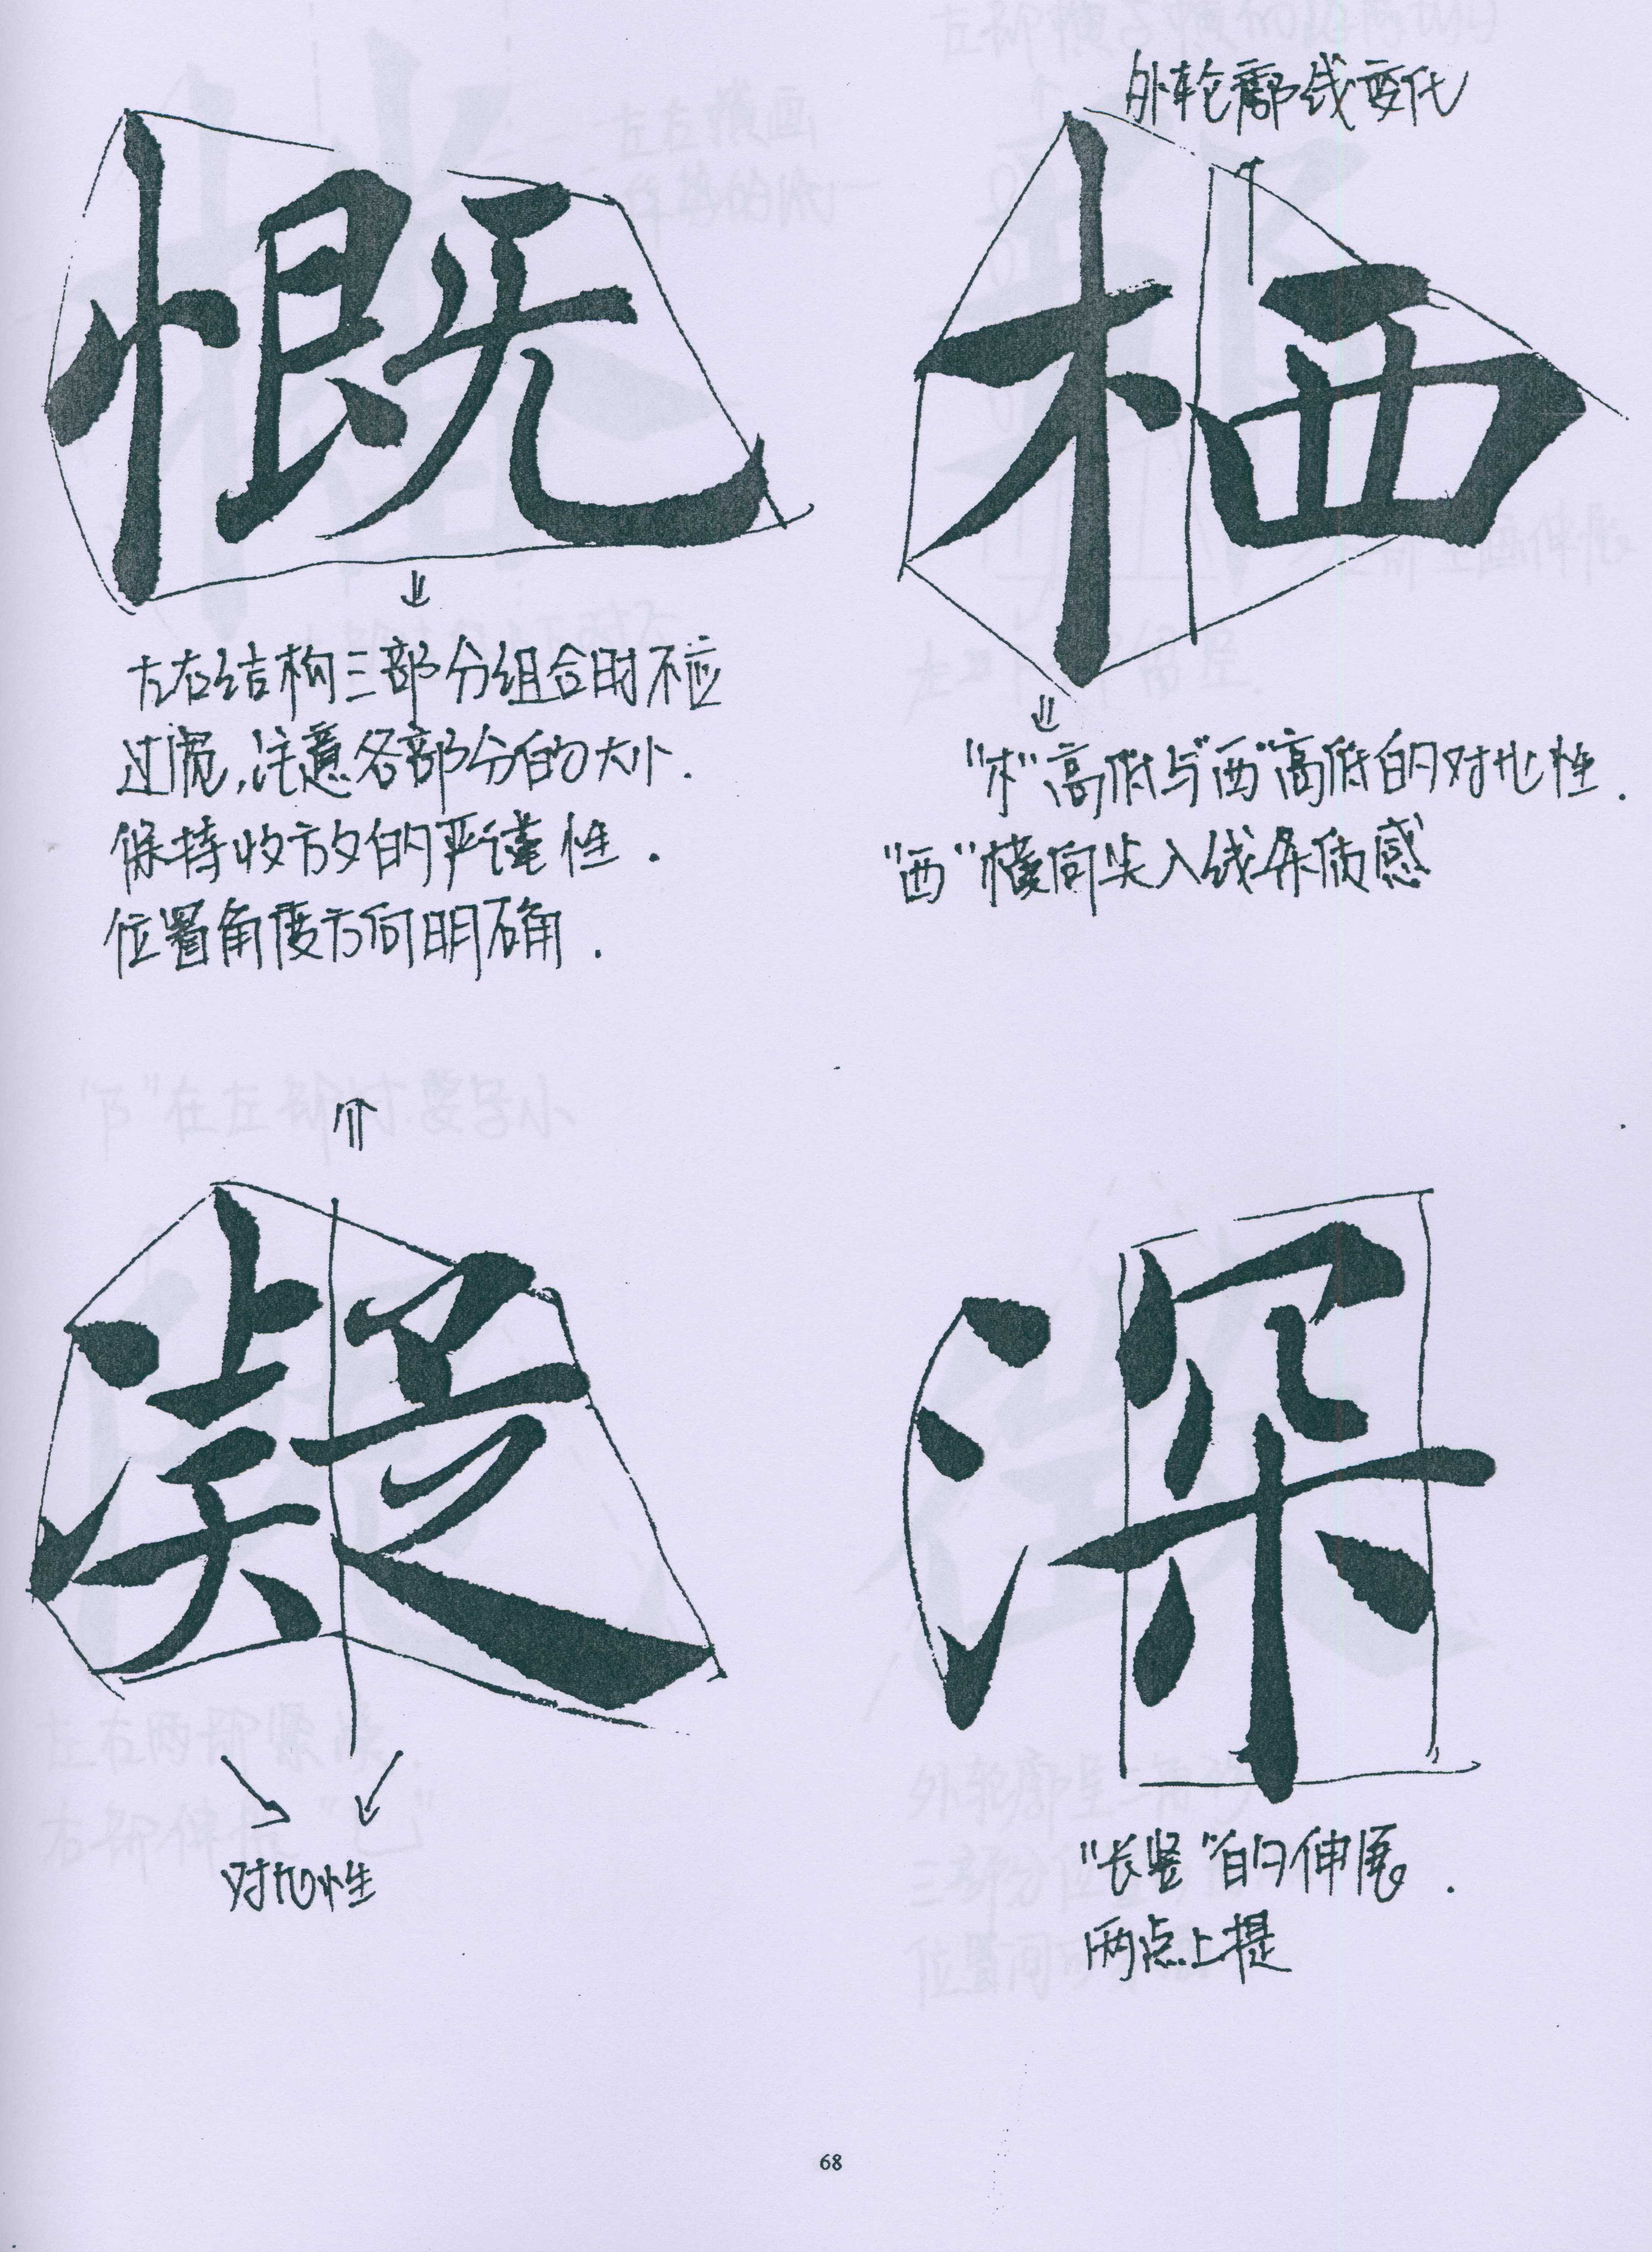 外轮廓线变化
慨
栖
左右结构三部分组合时不应
过宽,注意各部分的大小.
保持收方夕的严谨性.
位置角度方向明确.
"木"高低与"西"高低的对比性.
"西"横向尖入线条质感
凝
深
对比性
"长竖"的伸展.
两点上提
68